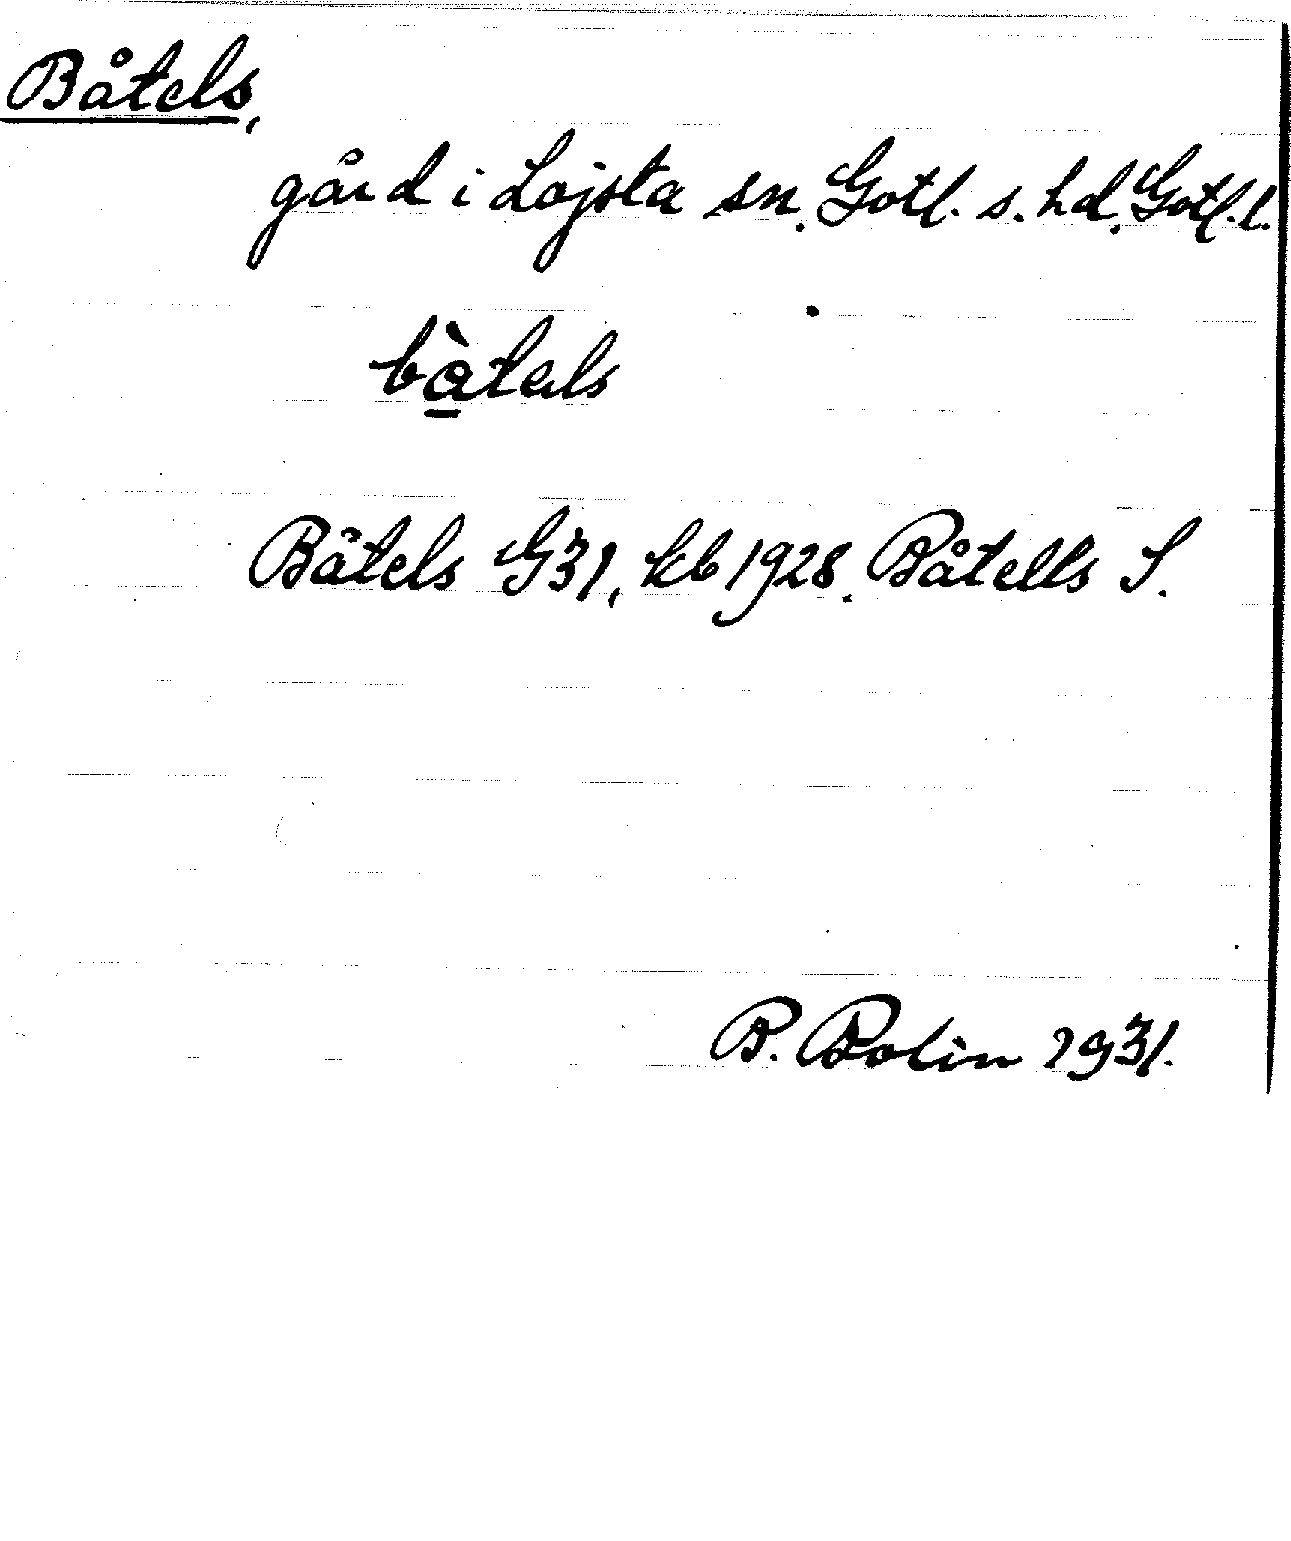 Båtels,
gård i Lojsta sn. Gotl. s. hd. Gotl. l.
bàtals
Båtels G31, kb 1928. Båtells S.
B. Bolin 1931.